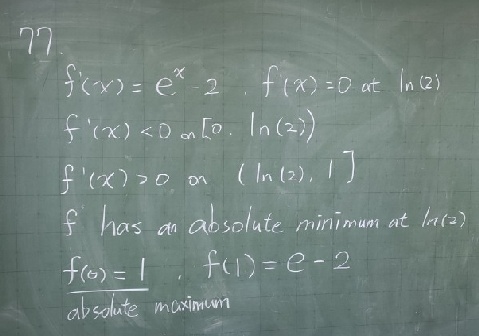 77.
f'(x) = e^x - 2 . f'(x) = 0 at ln(2)
f'(x) < 0 on [0. ln(2))
f'(x) > 0 on (ln(2), 1]
f has an absolute minimum at ln(2)
f(0) = 1 , f(1) = e - 2
absolute maximum